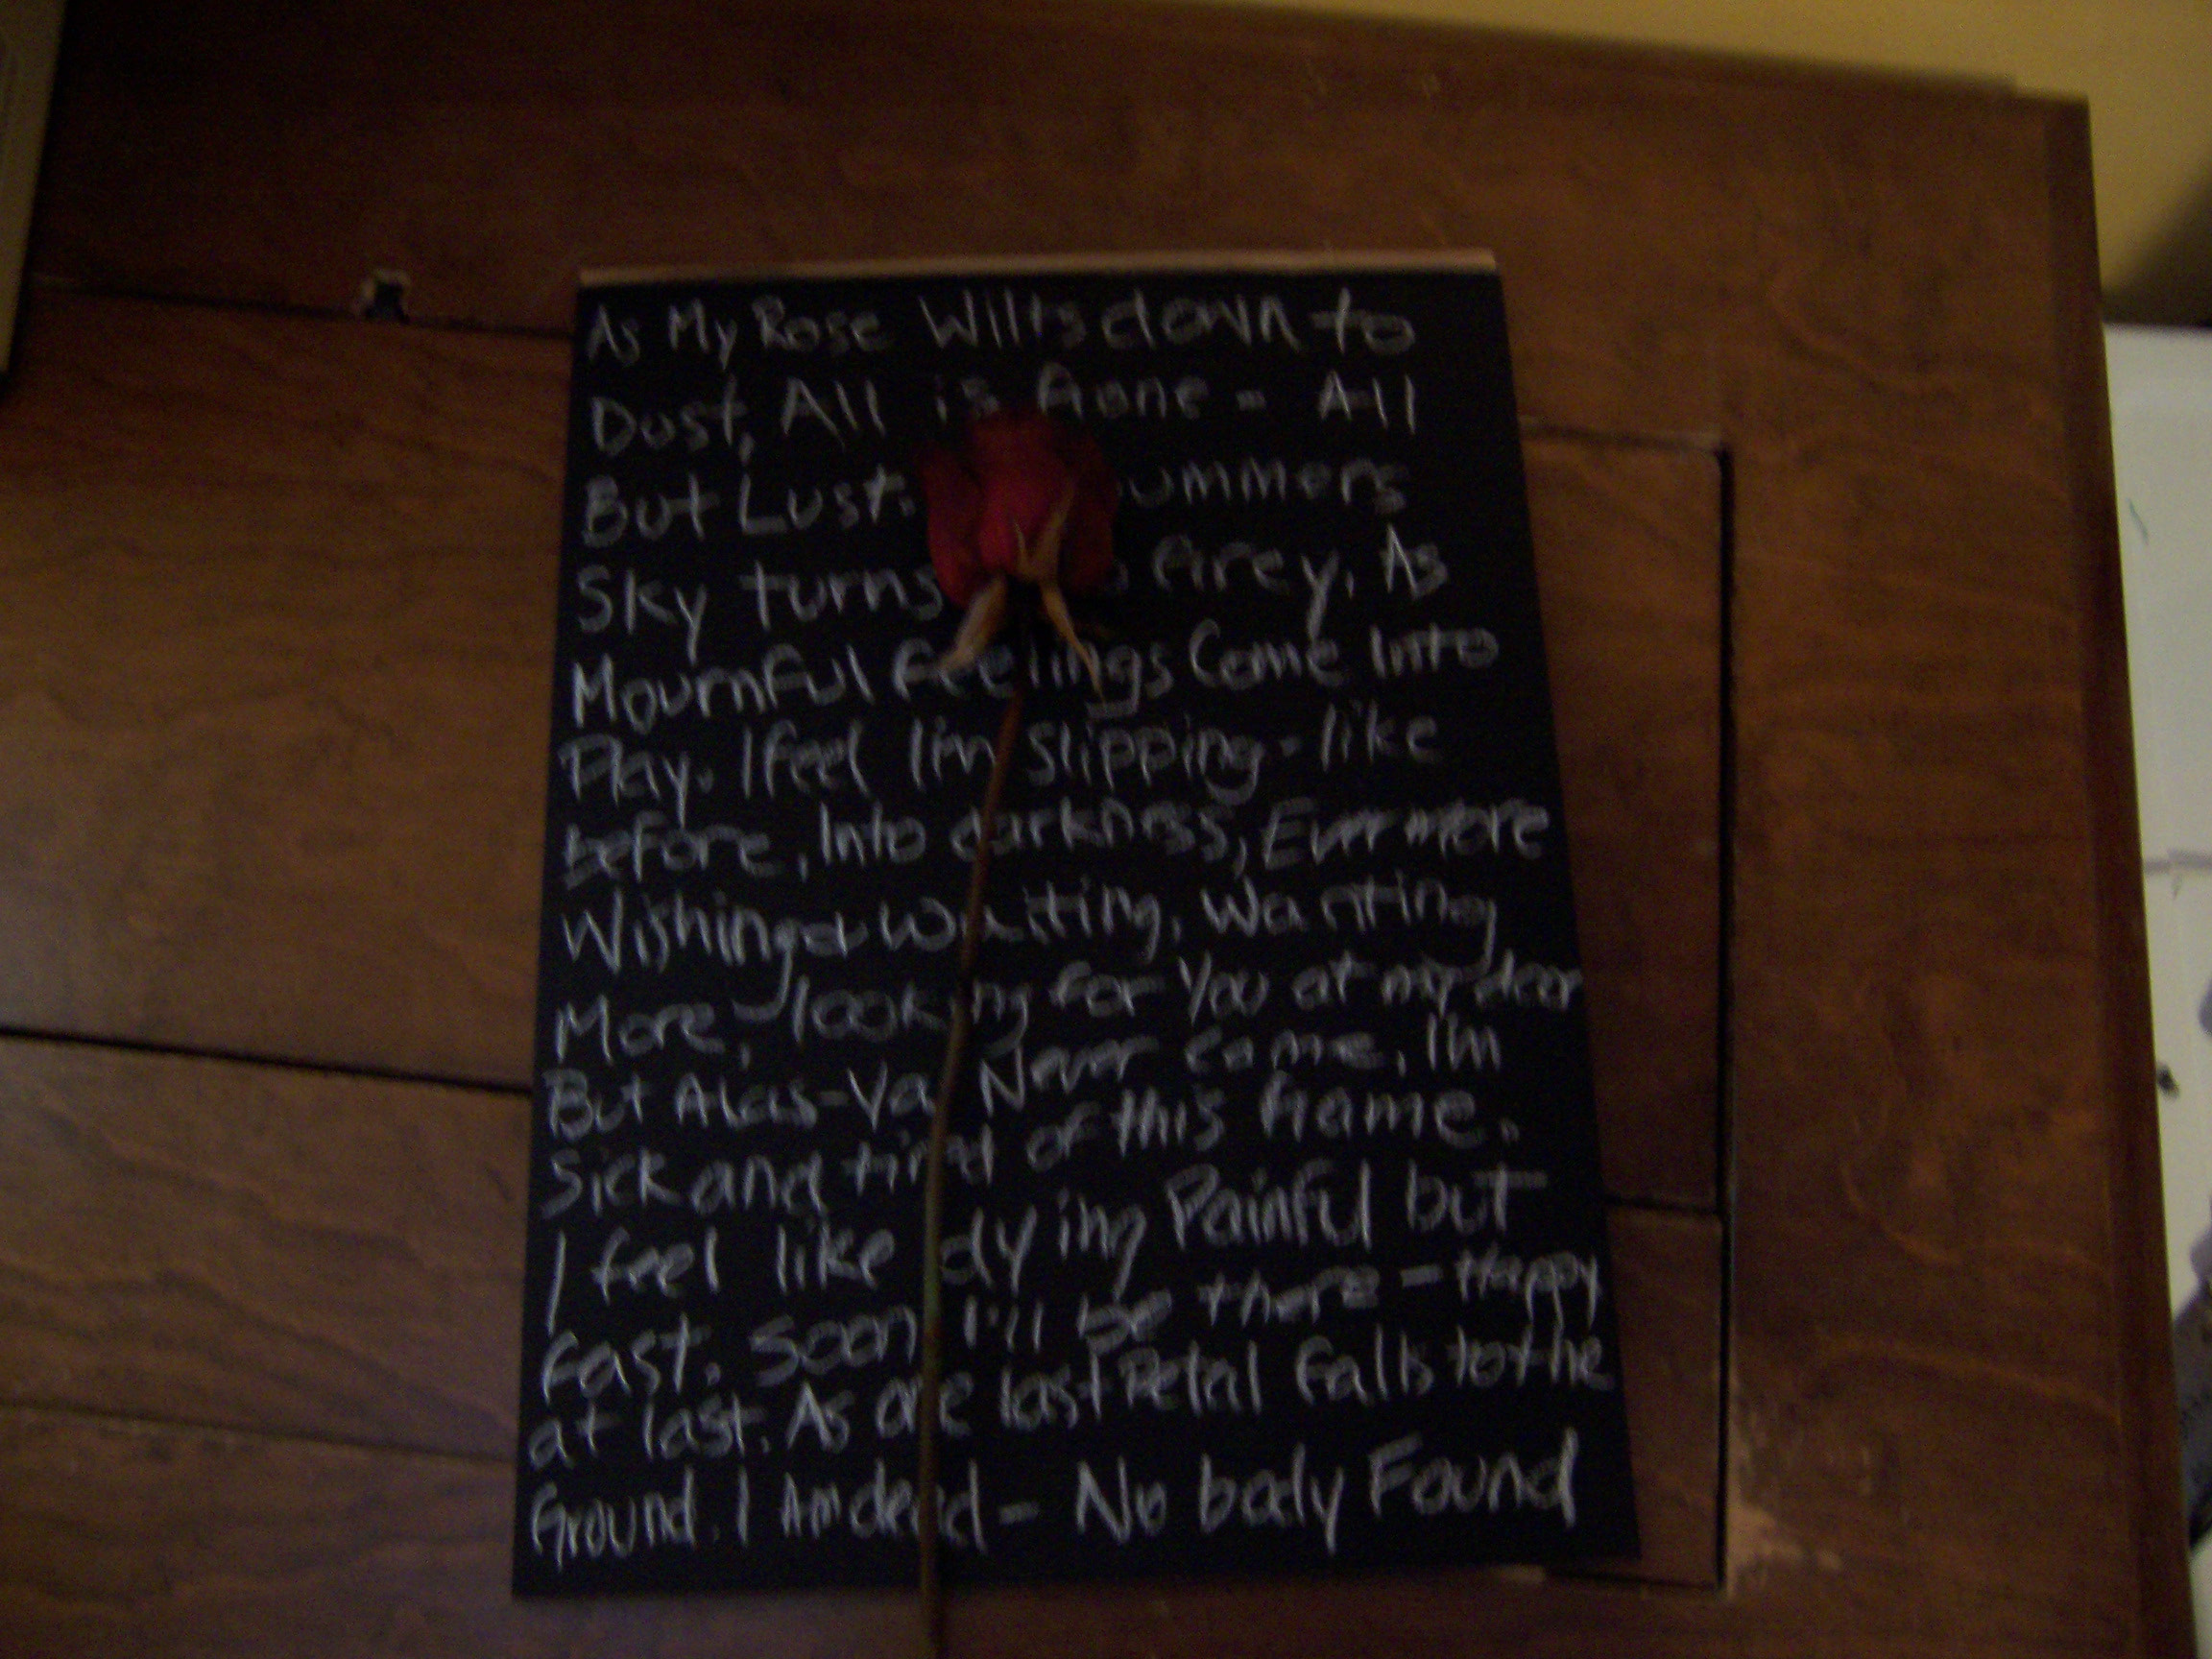 As My Rose Wilts down to
Dust, All is Gone - All
But Lust. ummers
Sky turns Grey. As
Mournful feelings Come Into
Play. I feel I'm slipping - like
before, Into darkness, Evermore
Wishing & Waiting, Wanting
More, looking for You at my door
But Alas - Ya Never come. I'm
Sick and tired of this Game.
I feel like dying Painful but
Fast. Soon I'll be there - Happy
at last. As one last Petal Falls to the
Ground. I Am dead - No body Found